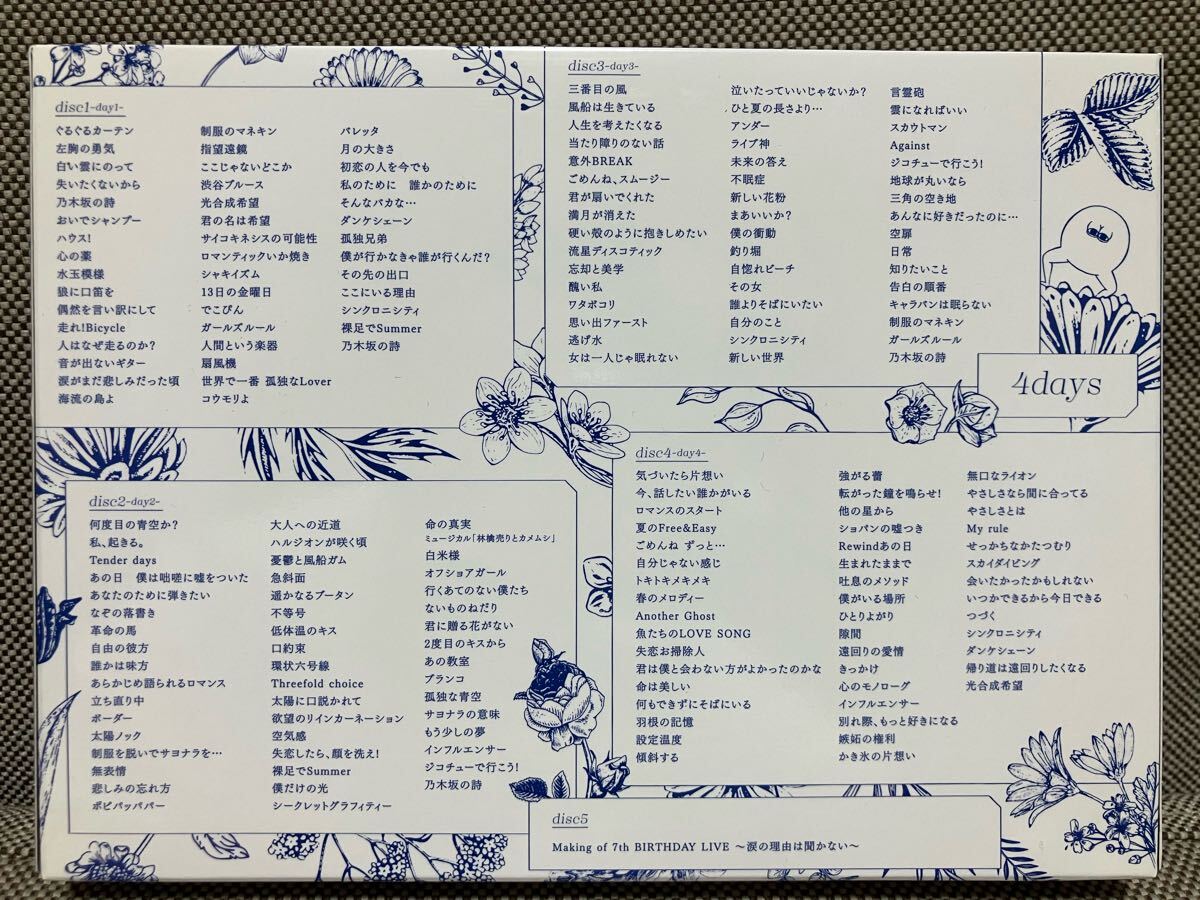 disc1-day1-
ぐるぐるカーテン
左胸の勇気
白い雲にのって
失いたくないから
乃木坂の詩
おいでシャンプー
ハウス!
心の薬
水玉模様
狼に口笛を
偶然を言い訳にして
走れ!Bicycle
人はなぜ走るのか?
音が出ないギター
涙がまだ悲しみだった頃
海流の島よ
制服のマネキン
指望遠鏡
ここじゃないどこか
渋谷ブルース
光合成希望
君の名は希望
サイコキネシスの可能性
ロマンティックいか焼き
シャキイズム
13日の金曜日
でこぴん
ガールズルール
人間という楽器
扇風機
世界で一番 孤独なLover
コウモリよ
バレッタ
月の大きさ
初恋の人を今でも
私のために 誰かのために
そんなバカな…
ダンケシェーン
孤独兄弟
僕が行かなきゃ誰が行くんだ?
その先の出口
ここにいる理由
シンクロニシティ
裸足でSummer
乃木坂の詩
disc2-day2-
何度目の青空か?
私、起きる。
Tender days
あの日 僕は咄嗟に嘘をついた
あなたのために弾きたい
なぞの落書き
革命の馬
自由の彼方
誰かは味方
あらかじめ語られるロマンス
立ち直り中
ボーダー
太陽ノック
制服を脱いでサヨナラを…
無表情
悲しみの忘れ方
ポピパッパパー
大人への近道
ハルジオンが咲く頃
憂鬱と風船ガム
急斜面
遥かなるブータン
不等号
低体温のキス
口約束
環状六号線
Threefold choice
太陽に口説かれて
欲望のリインカーネーション
空気感
失恋したら、顔を洗え!
裸足でSummer
僕だけの光
シークレットグラフィティー
命の真実
ミュージカル「林檎売りとカメムシ」
白米様
オフショアガール
行くあてのない僕たち
ないものねだり
君に贈る花がない
2度目のキスから
あの教室
ブランコ
孤独な青空
サヨナラの意味
もう少しの夢
インフルエンサー
ジコチューで行こう!
乃木坂の詩
disc3-day3-
三番目の風
風船は生きている
人生を考えたくなる
当たり障りのない話
意外BREAK
ごめんね、スムージー
君が扇いでくれた
満月が消えた
硬い殻のように抱きしめたい
流星ディスコティック
忘却と美学
醜い私
ワタボコリ
思い出ファースト
逃げ水
女は一人じゃ眠れない
泣いたっていいじゃないか?
ひと夏の長さより…
アンダー
ライブ神
未来の答え
不眠症
新しい花粉
まあいいか?
僕の衝動
釣り堀
自惚れビーチ
その女
誰よりそばにいたい
自分のこと
シンクロニシティ
新しい世界
言霊砲
雲になればいい
スカウトマン
Against
ジコチューで行こう!
地球が丸いなら
三角の空き地
あんなに好きだったのに…
空扉
日常
知りたいこと
告白の順番
キャラバンは眠らない
制服のマネキン
ガールズルール
乃木坂の詩
4days
disc4-day4-
気づいたら片想い
今、話したい誰かがいる
ロマンスのスタート
夏のFree&Easy
ごめんね ずっと…
自分じゃない感じ
トキトキメキメキ
春のメロディー
Another Ghost
魚たちのLOVE SONG
失恋お掃除人
君は僕と会わない方がよかったのかな
命は美しい
何もできずにそばにいる
羽根の記憶
設定温度
傾斜する
強がる蕾
転がった鐘を鳴らせ!
他の星から
ショパンの嘘つき
Rewindあの日
生まれたままで
吐息のメソッド
僕がいる場所
ひとりよがり
隙間
遠回りの愛情
きっかけ
心のモノローグ
インフルエンサー
別れ際、もっと好きになる
嫉妬の権利
かき氷の片想い
無口なライオン
やさしさなら間に合ってる
やさしさとは
My rule
せっかちなかたつむり
スカイダイビング
会いたかったかもしれない
いつかできるから今日できる
つづく
シンクロニシティ
ダンケシェーン
帰り道は遠回りしたくなる
光合成希望
disc5
Making of 7th BIRTHDAY LIVE 〜涙の理由は聞かない〜